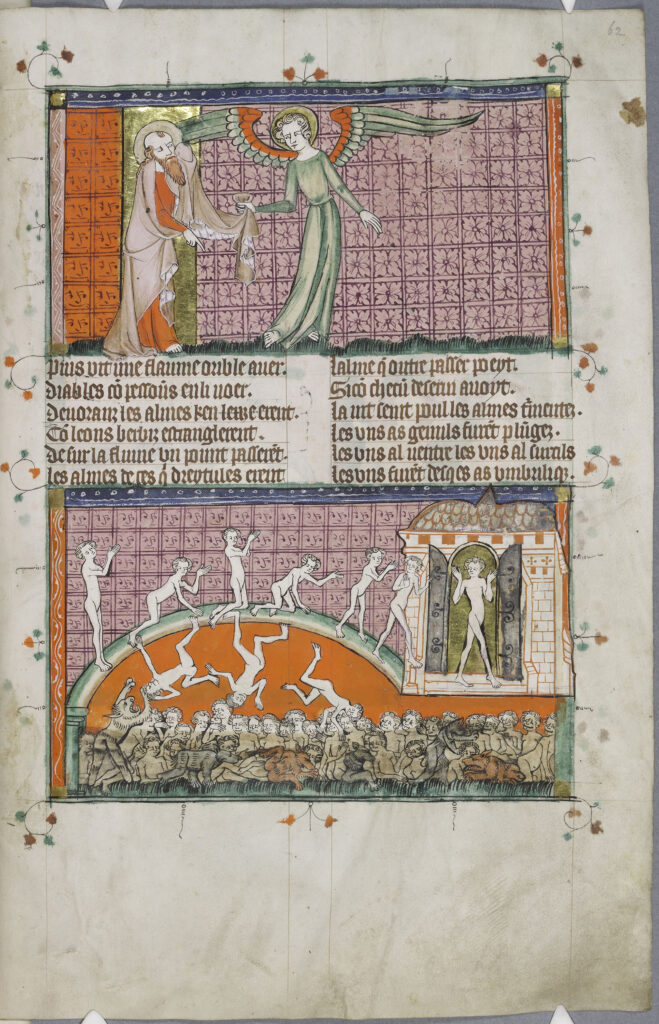 62
Puis vit une flaume orible aver.
Diables cō pessons en li noer.
Devoranz les almes ken lewe erent.
Cō leons berbiz estranglerent.
De sur la flume un pount passerēt
les almes de ces q̄ dreytules erent
lalme q̄ outre passer poeyt.
Sicō checū deservi avoyt.
la vit seint poul les almes
les uns as genuls furēt plūgez.
les uns al ventre les uns al surcils
les uns furēt desqes as umbriliq̄.